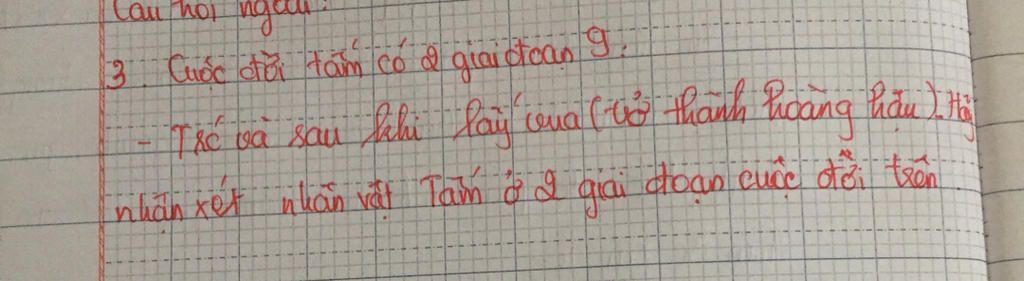 Câu hỏi ngắn:
3. Cuộc đời tấm có 2 giai đoạn g.
- Trc và sau khi lấy vua (trở thành hoàng hậu). Hãy
nhận xét nhân vật Tấm ở 2 giai đoạn cuộc đời trên